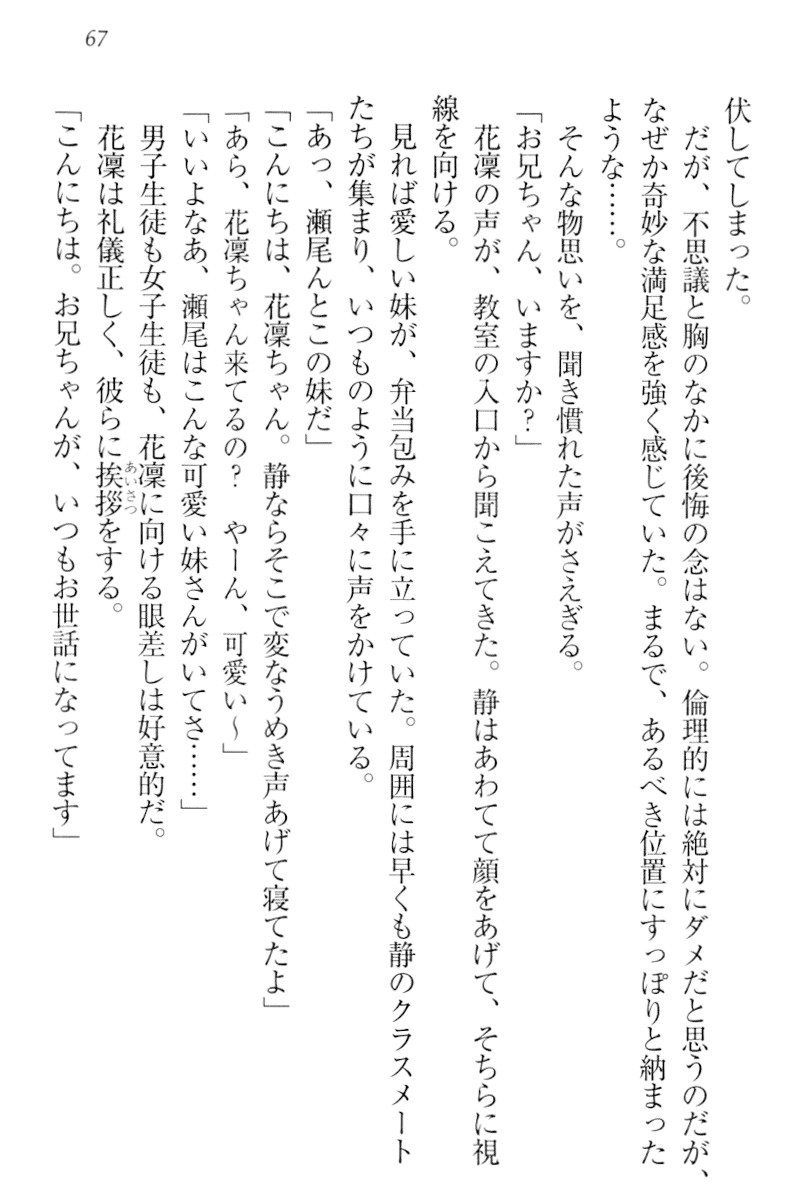 67
伏してしまった。
だが、不思議と胸のなかに後悔の念はない。倫理的には絶対にダメだと思うのだが、
なぜか奇妙な満足感を強く感じていた。まるで、あるべき位置にすっぽりと納まった
ような……。
そんな物思いを、聞き慣れた声がさえぎる。
「お兄ちゃん、いますか?」
花凛の声が、教室の入口から聞こえてきた。静はあわてて顔をあげて、そちらに視
線を向ける。
見れば愛しい妹が、弁当包みを手に立っていた。周囲には早くも静のクラスメート
たちが集まり、いつものように口々に声をかけている。
「あっ、瀬尾んとこの妹だ」
「こんにちは、花凛ちゃん。静ならそこで変なうめき声あげて寝てたよ」
「あら、花凛ちゃん来てるの? やーん、可愛い〜」
「いいよなあ、瀬尾はこんな可愛い妹さんがいてさ……」
男子生徒も女子生徒も、花凛に向ける眼差しは好意的だ。
花凛は礼儀正しく、彼らに挨拶をする。
あいさつ
「こんにちは。お兄ちゃんが、いつもお世話になってます」